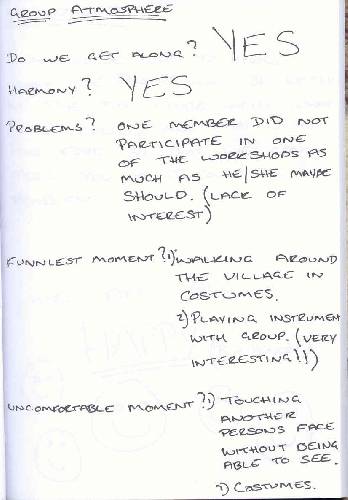 GROUP ATMOSPHERE
DO WE GET ALONG? YES
HARMONY? YES
PROBLEMS? ONE MEMBER DID NOT
PARTICIPATE IN ONE
OF THE WORKSHOPS AS
MUCH AS HE/SHE MAYBE
SHOULD. (LACK OF
INTEREST)
FUNNIEST MOMENT? 1) WALKING AROUND
THE VILLAGE IN
COSTUMES.
2) PLAYING INSTRUMEN
WITH GROUP. (VERY
INTERESTING!!)
UNCOMFORTABLE MOMENT? 1) TOUCHING
ANOTHER
PERSONS FACE
WITHOUT BEING
ABLE TO SEE.
1) COSTUMES.